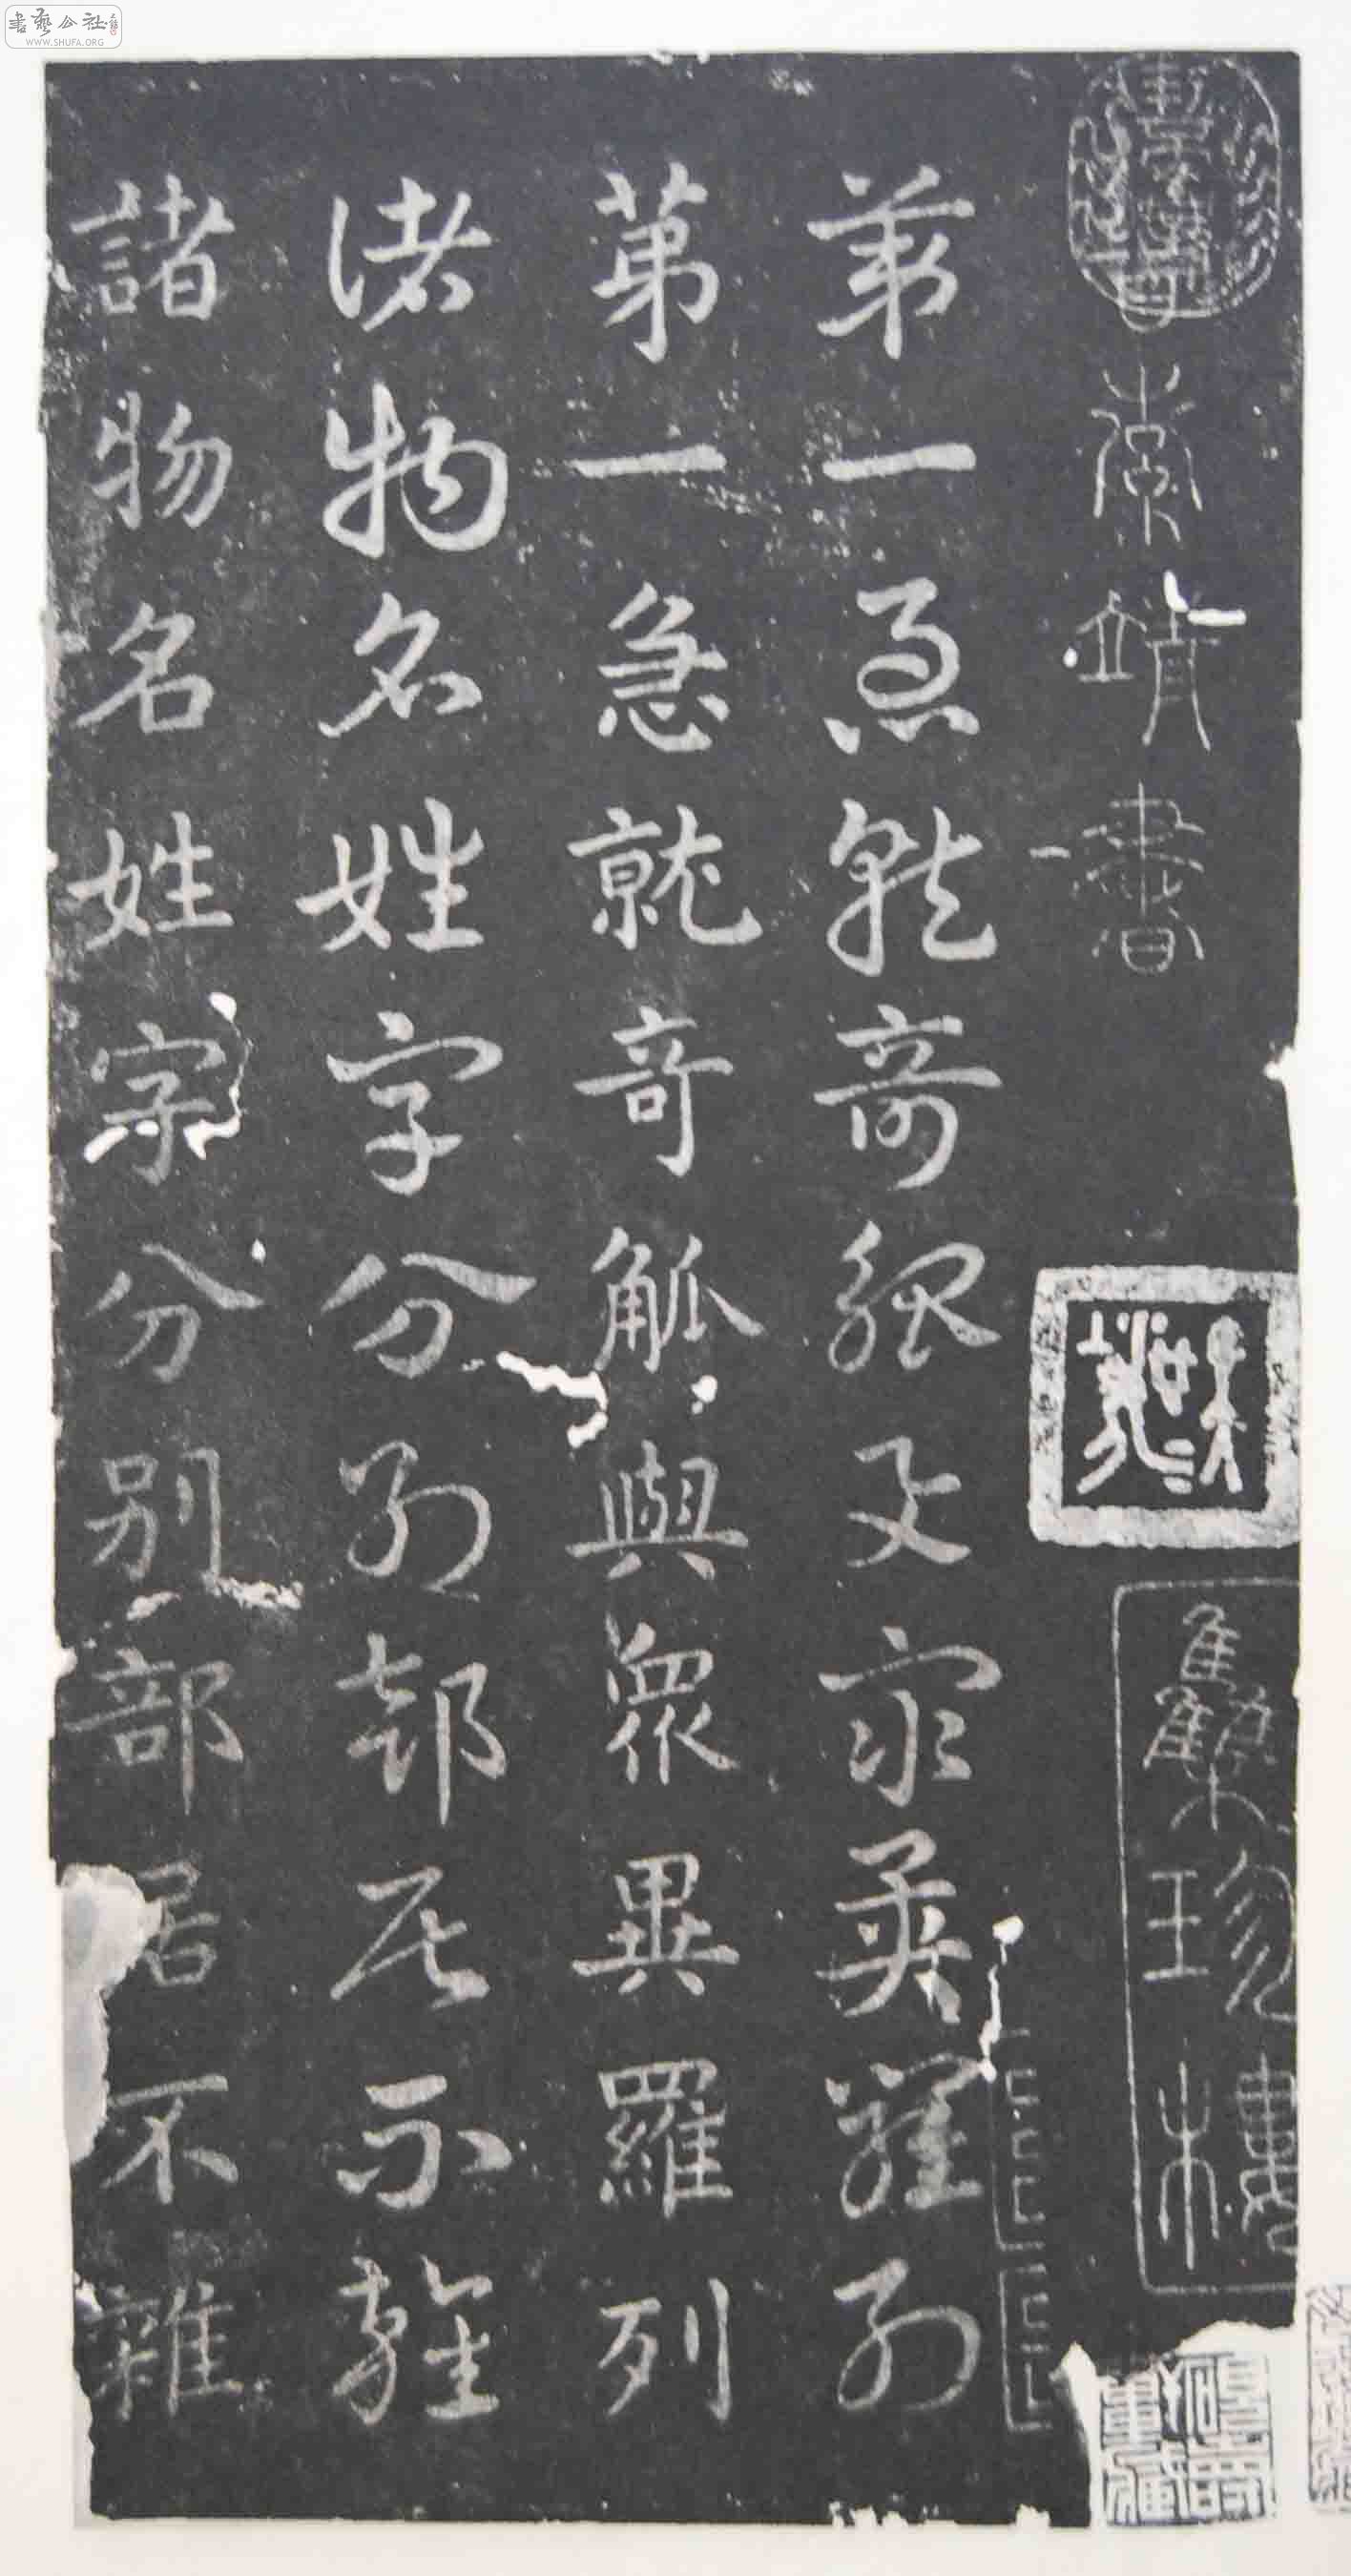 書藝公社
WWW.SHUFA.ORG
索靖書
第一急就奇觚與眾異羅列
第一急就竒觚與眾異羅列
諸物名姓字分別部居不雜
諸物名姓字分別部居不雜